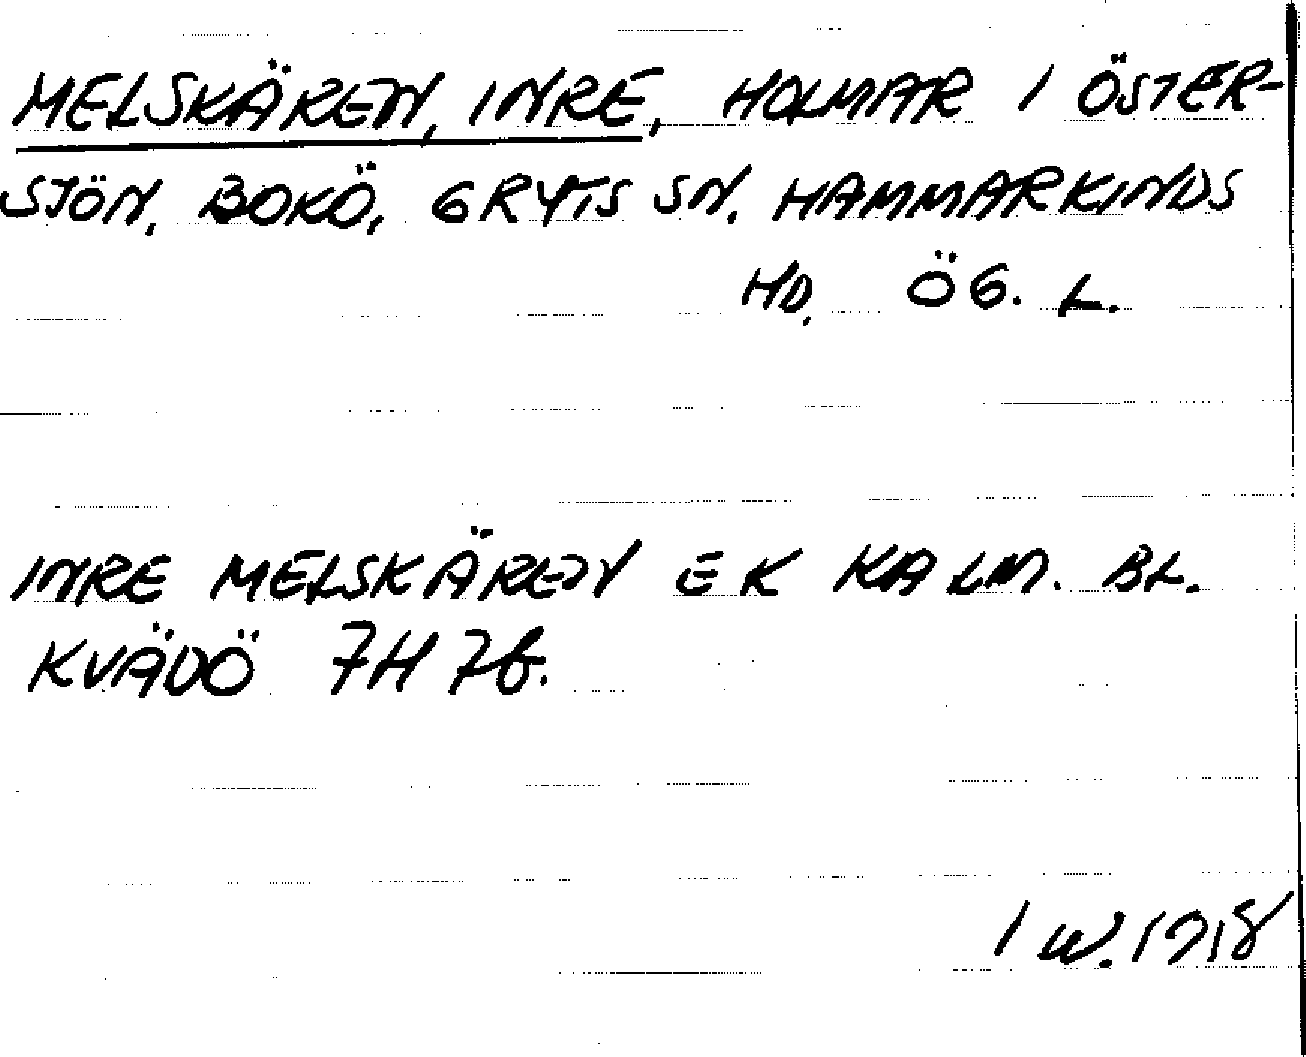 MELSKÄREN, INRE, HOLMAR I ÖSTER-
SJÖN, BOKÖ, GRYTS SN. HAMMARKINDS
HD. ÖG. L.
INRE MELSKÄREN EK KALM. BL.
KVÄDÖ 7H 7b.
I W. 1918